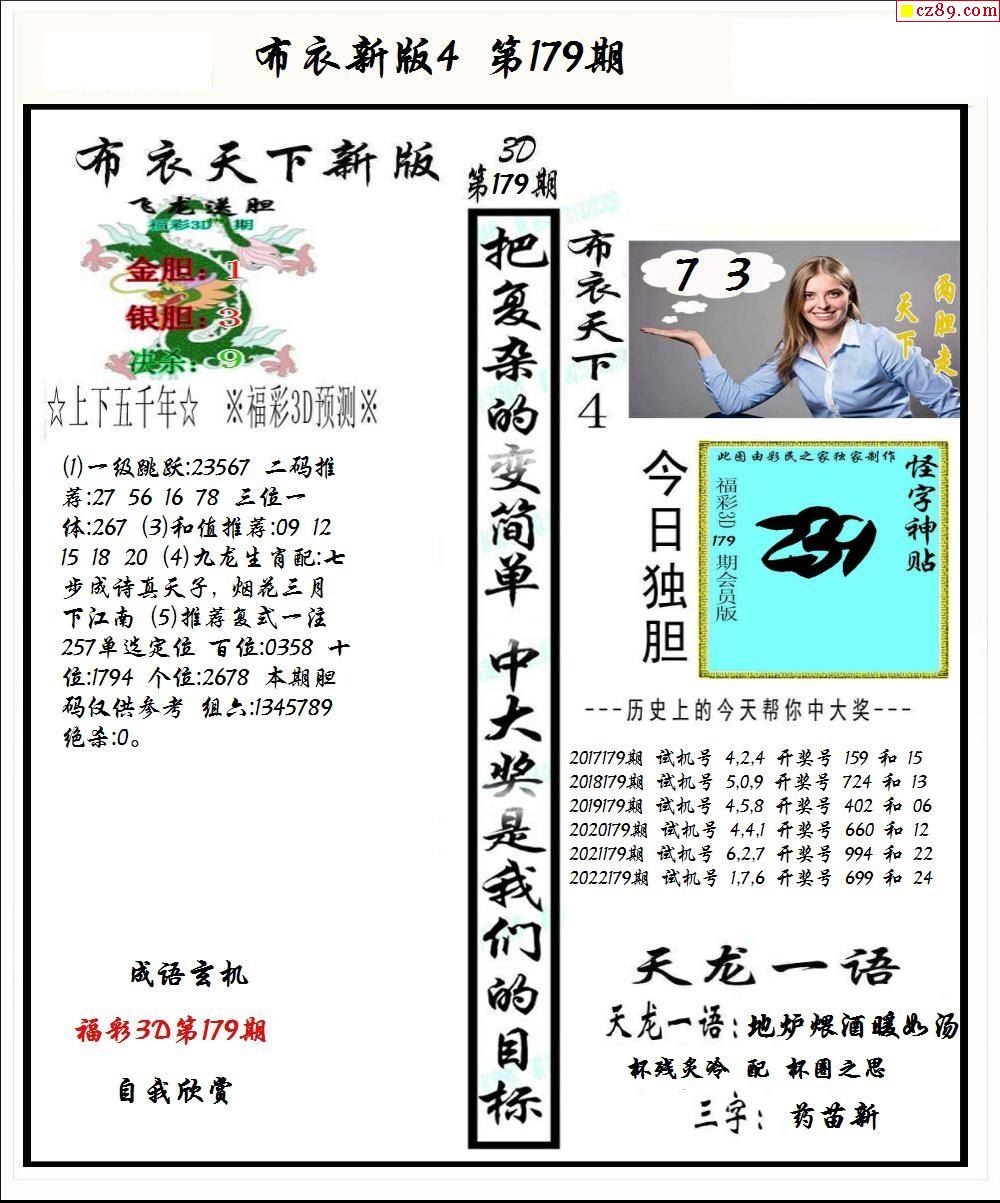 cz89.com
布衣新版4 第179期
布衣天下新版
飞龙送胆
福彩3D 期
金胆：1
银胆：3
决杀：9
☆上下五千年☆ ※福彩3D预测※
(1)一级跳跃:23567 二码推
荐:27 56 16 78 三位一
体:267 (3)和值推荐:09 12
15 18 20 (4)九龙生肖配:七
步成诗真天子，烟花三月
下江南 (5)推荐复式一注
257单选定位 百位:0358 十
位:1794 个位:2678 本期胆
码仅供参考 组六:1345789
绝杀:0。
成语玄机
福彩3D第179期
自我欣赏
3D
第179期
把复杂的变简单 中大奖是我们的目标
布衣天下4
7 3
两胆走
天下
今日独胆
此图由彩民之家独家制作
怪字神贴
福彩3D 179 期会员版
---历史上的今天帮你中大奖---
2017179期 试机号 4,2,4 开奖号 159 和 15
2018179期 试机号 5,0,9 开奖号 724 和 13
2019179期 试机号 4,5,8 开奖号 402 和 06
2020179期 试机号 4,4,1 开奖号 660 和 12
2021179期 试机号 6,2,7 开奖号 994 和 22
2022179期 试机号 1,7,6 开奖号 699 和 24
天龙一语
天龙一语：地炉煨酒暖如汤
杯残炙冷 配 杯圈之思
三字： 药苗新